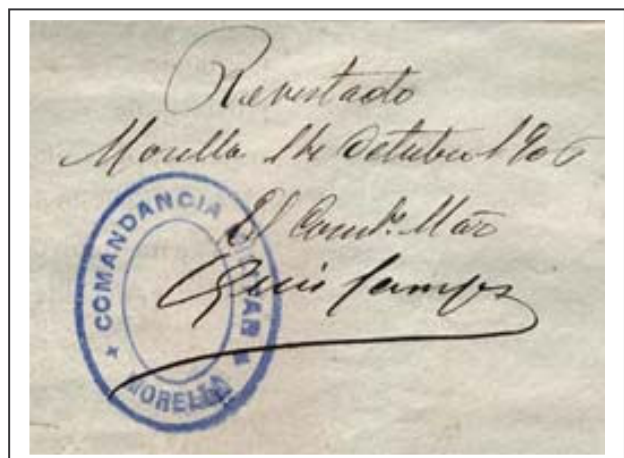 Revistado
Morella 1 de Octubre 1906
El Comte Mar
Luis Campos
COMANDANCIA MILITAR
MORELLA